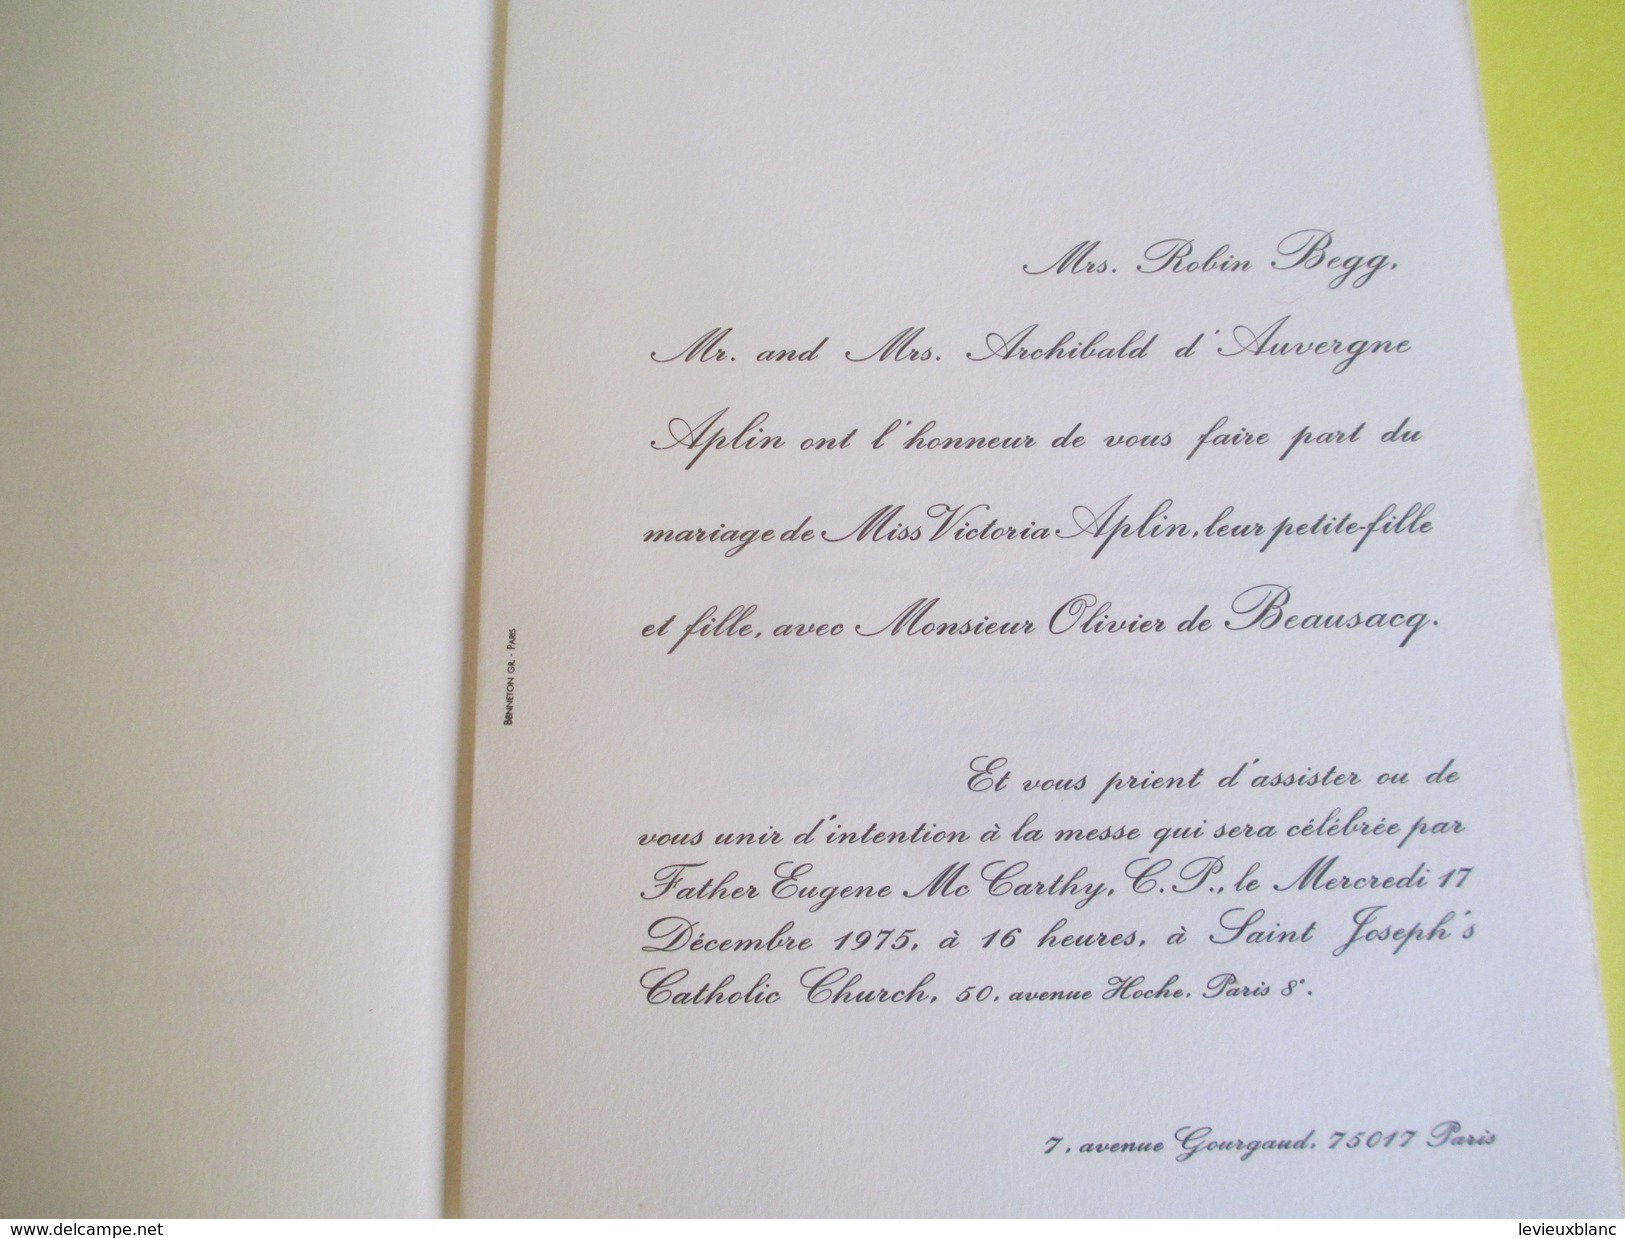 Mrs. Robin Begg,
Mr. and Mrs. Archibald d'Auvergne
Aplin ont l'honneur de vous faire part du
mariage de Miss Victoria Aplin, leur petite-fille
et fille, avec Monsieur Olivier de Beausacq.
BENNETON GR. - PARIS
Et vous prient d'assister ou de
vous unir d'intention à la messe qui sera célébrée par
Father Eugene Mc Carthy, C. P., le Mercredi 17
Décembre 1975, à 16 heures, à Saint Joseph's
Catholic Church, 50, avenue Hoche, Paris 8e.
7, avenue Gourgaud, 75017 Paris
www.delcampe.net
levieuxblanc